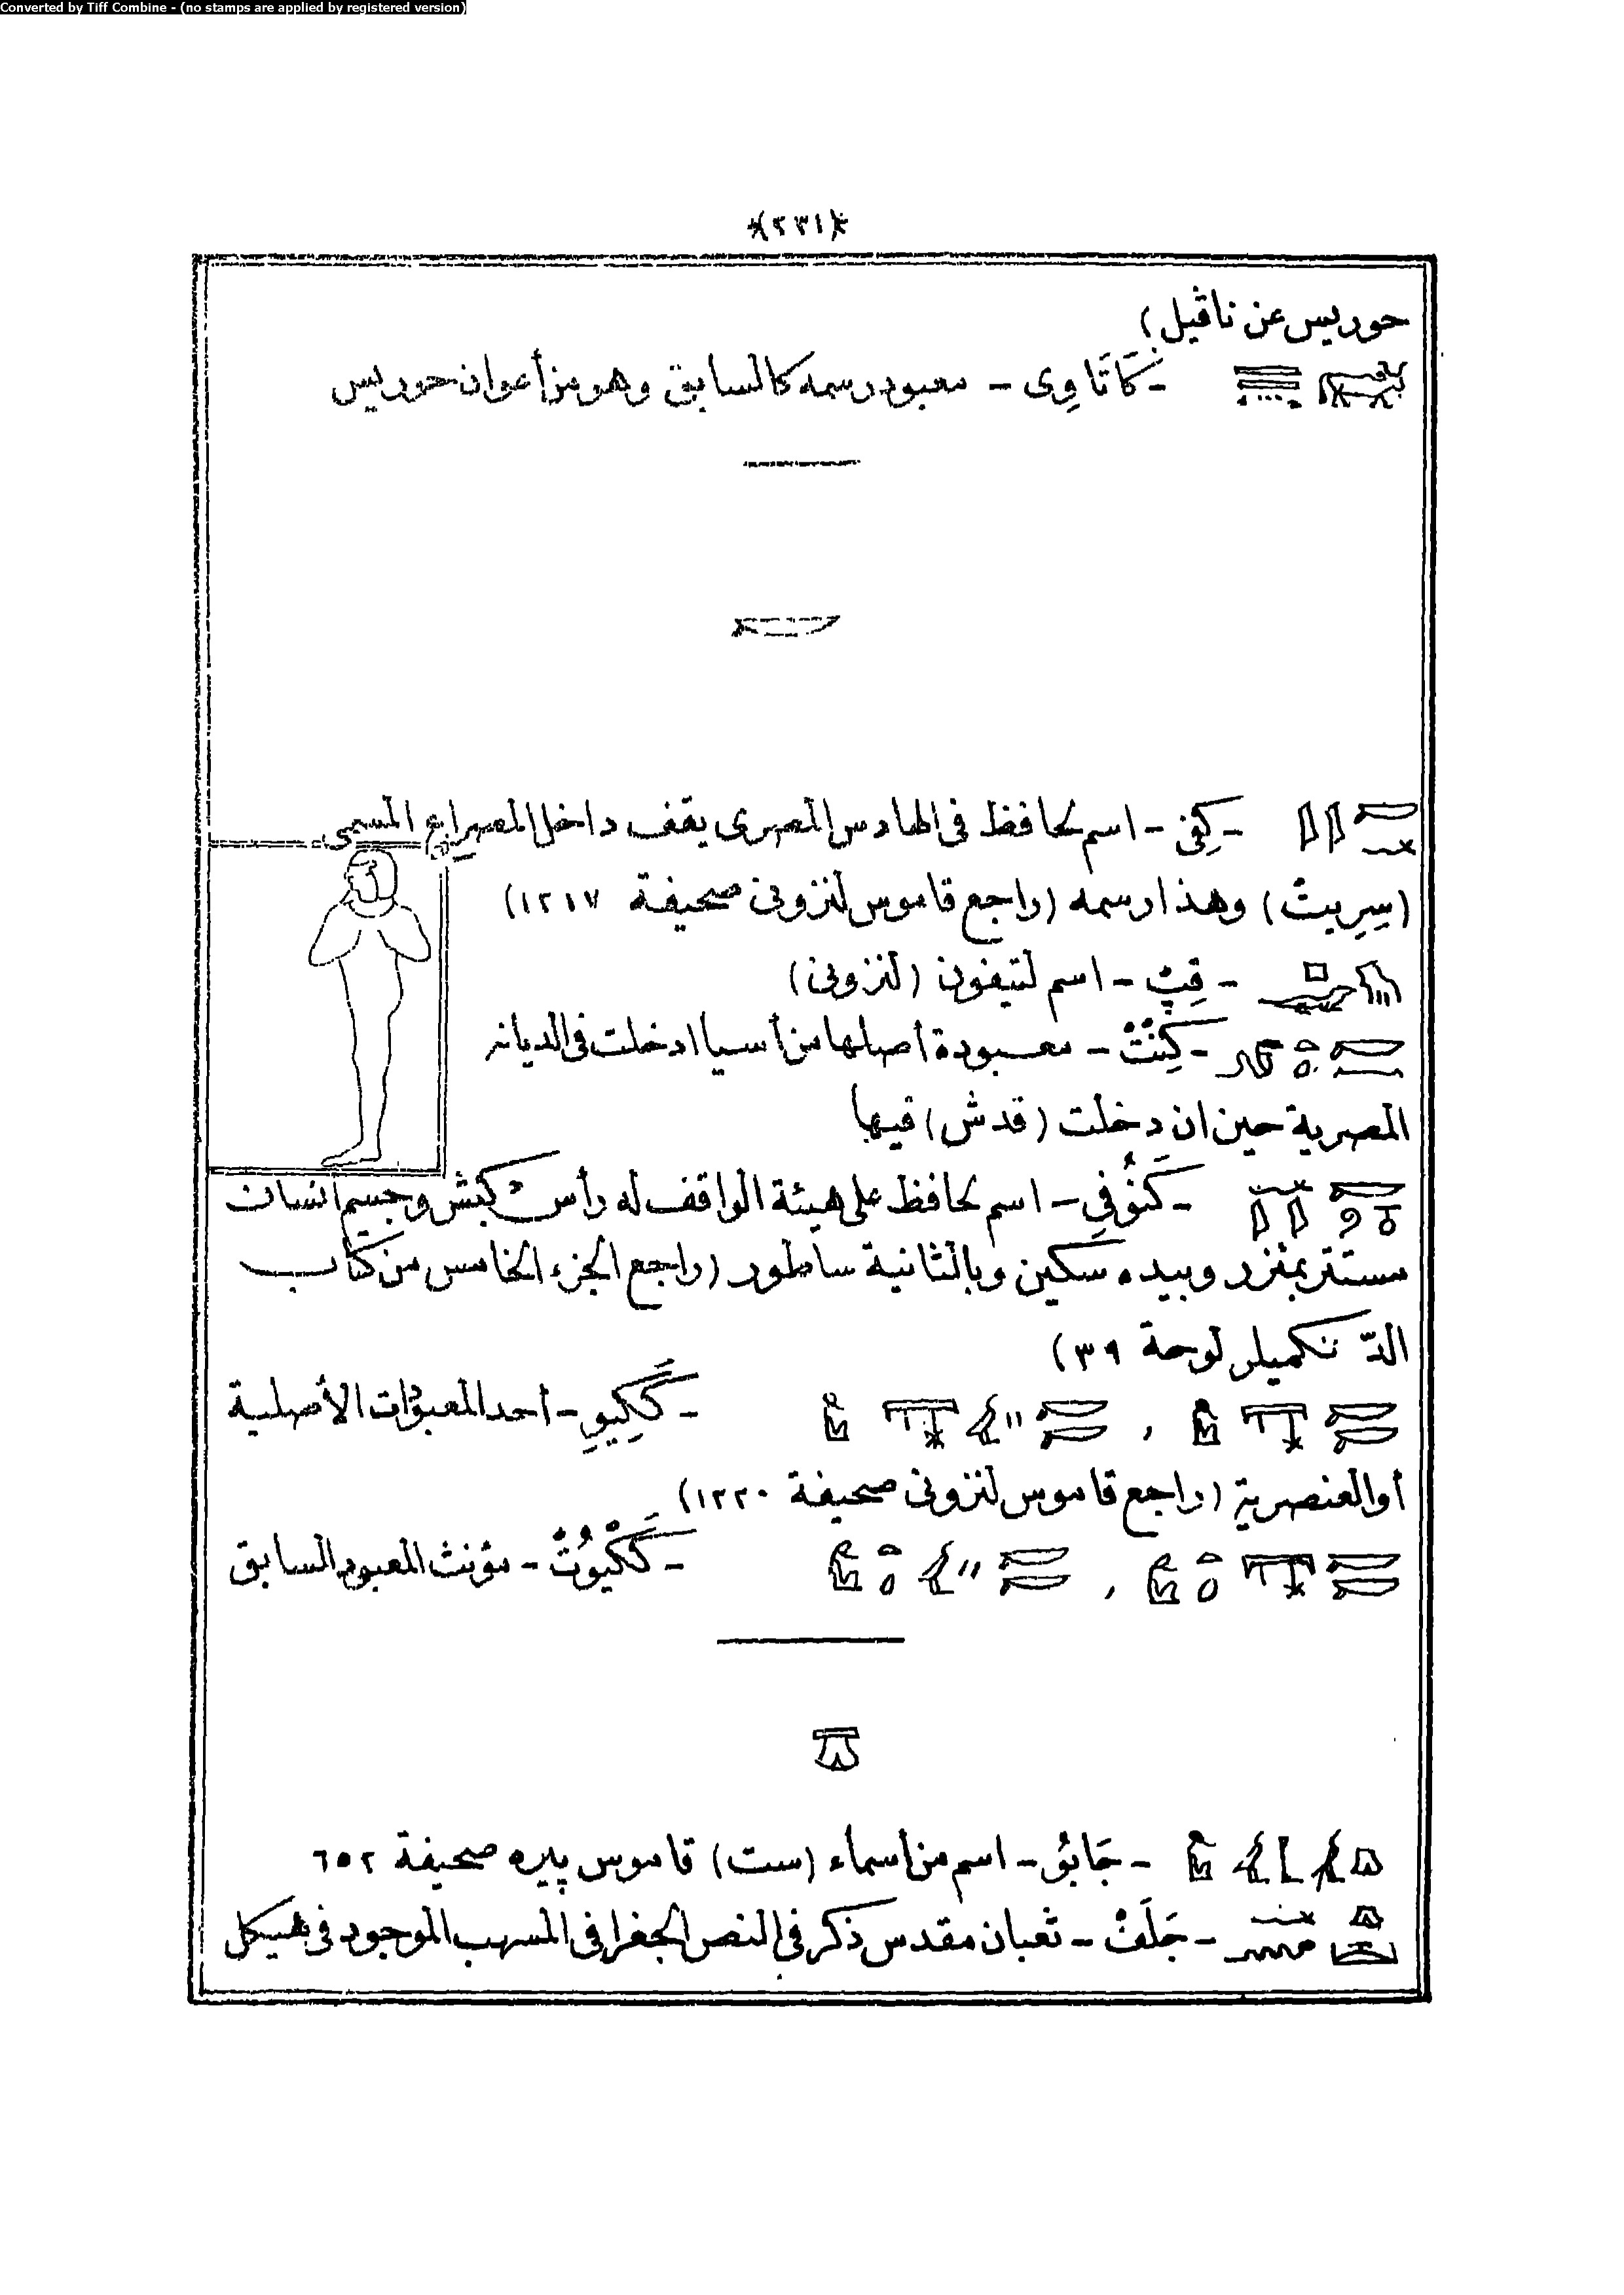 Converted by Tiff Combine - (no stamps are applied by registered version)
*(٢٣١)*
حوريس عن ناڤيل)
- كَاتَاوِى - معبود رسمه كالسابق وهو من أعوان حوريس
- كِفِى - اسم لحافظ فى الهادس المصرى يقف داخل المصراع المسمى
(سِرِيتْ) وهذا رسمه (راجع قاموس لنزونى صحيفة ١٢١٧)
- قِپْ - اسم لتيفون (لنزونى)
- كِنْتْ - معبودة أصلها من أسيا ادخلت فى الديانة
المصرية حين ان دخلت (قدش) فيها
- كَنُوفِي - اسم لحافظ على هيئة الواقف له رأس كبش وجسم انسان
مستتر بمئزر وبيده سكين وبالثانية ساطور (راجع الجزء الخامس من كتاب
الدّ نكميلر لوحة ٣٩)
، - كَكِيو - أحد المعبودات الأصلية
أو العنصرية (راجع قاموس لنزونى صحيفة ١٢٢٠)
، - كَكْيُوتْ - مؤنث المعبود السابق
- جَابُو - اسم من أسماء (ست) قاموس پيره صحيفة ٦٥٢
- جَلَفْ - ثعبان مقدس ذكر فى النص الجغرافى المسهب الموجود فى هيكل